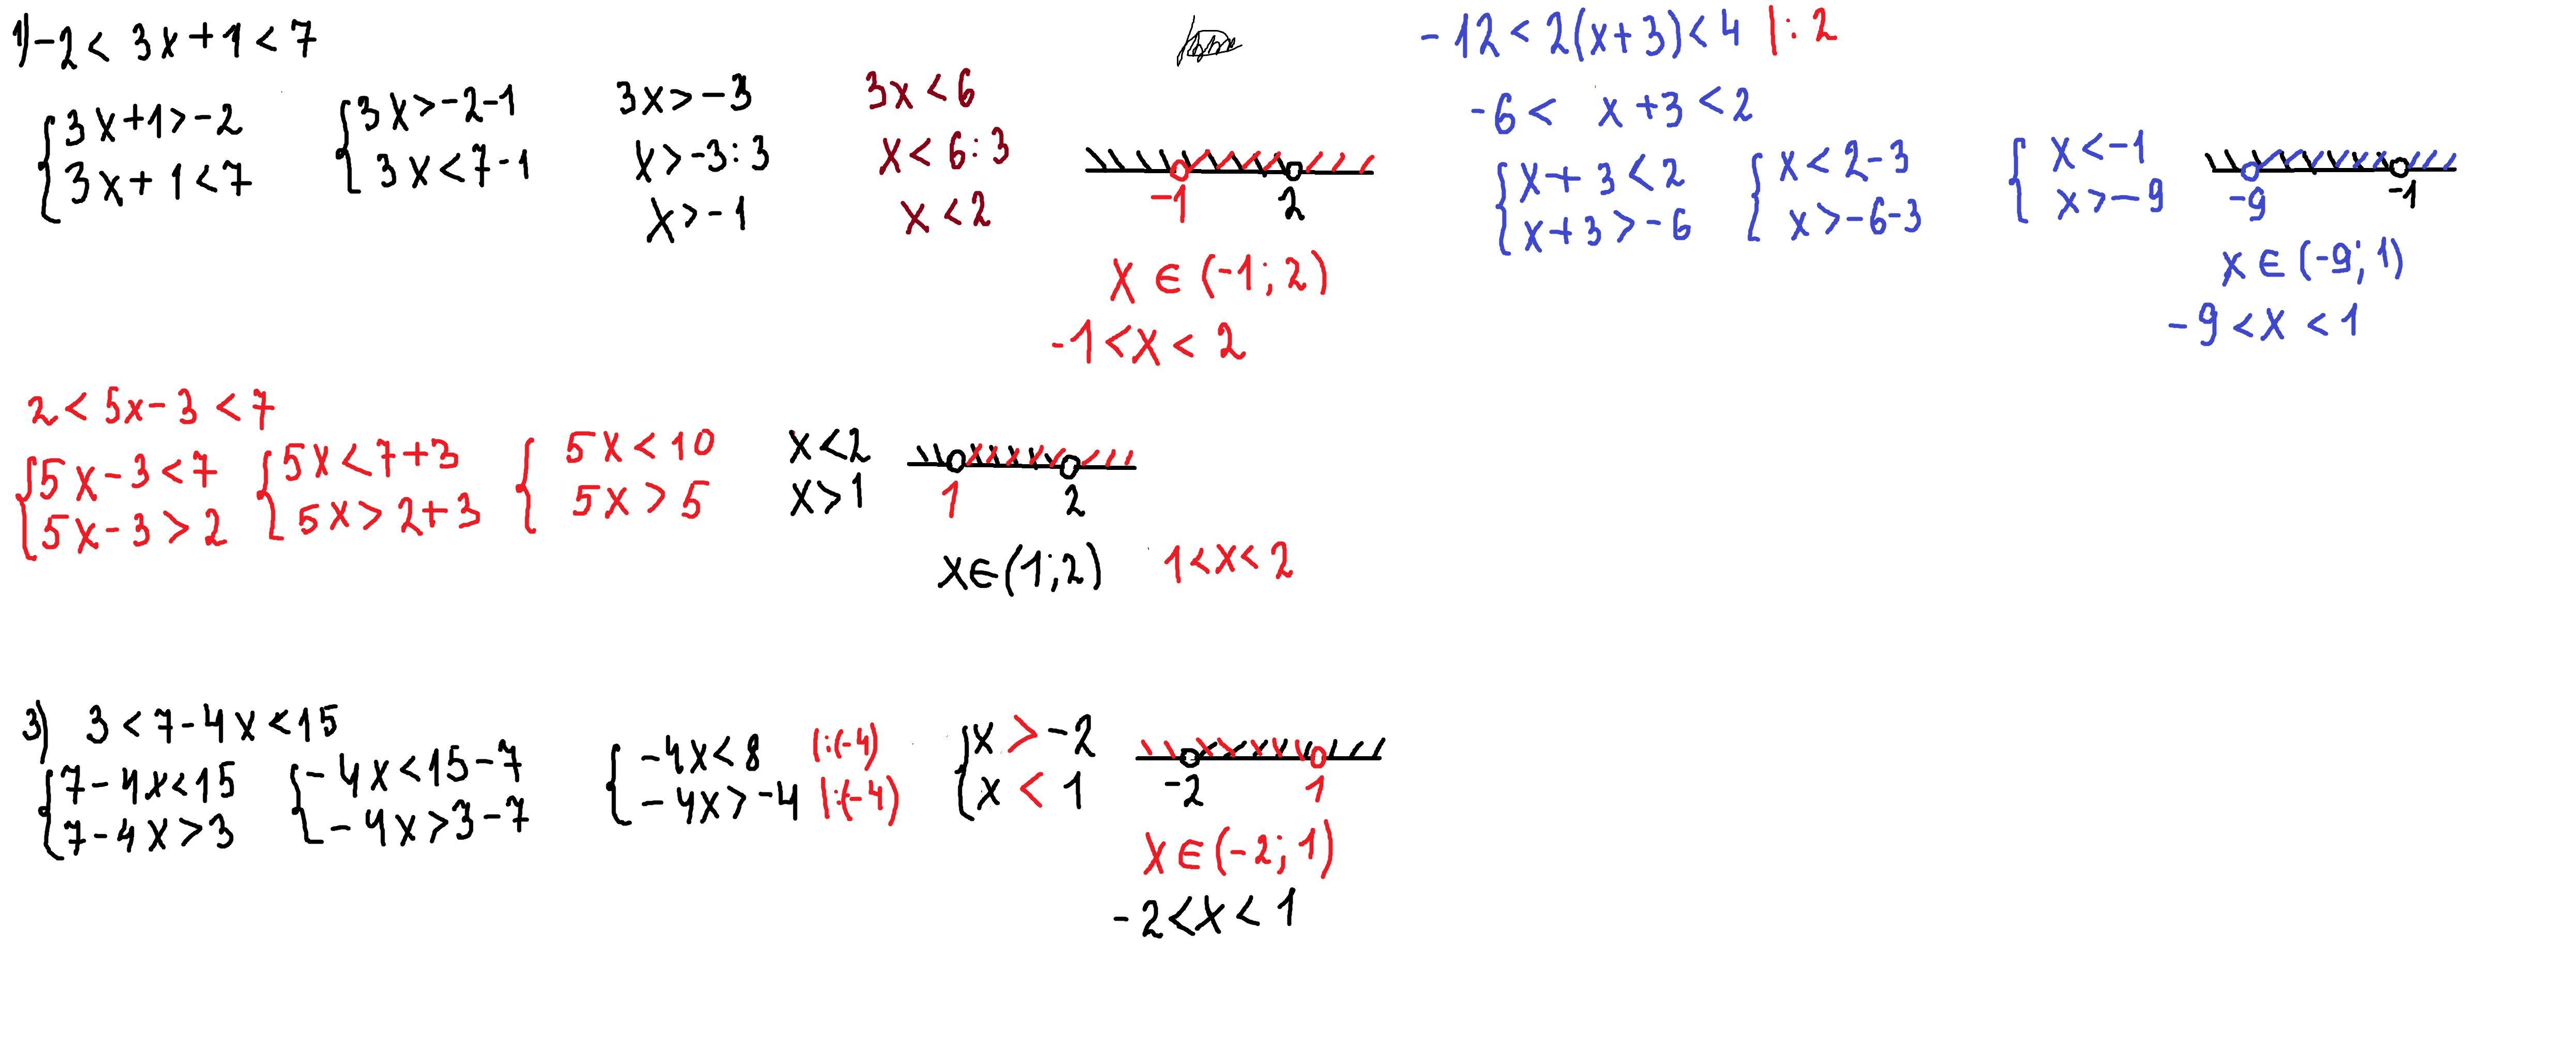 1) -2 < 3x+1 < 7
{3x+1>-2
3x+1<7
{3x>-2-1
3x<7-1
3x>-3
x>-3:3
x>-1
3x<6
x<6:3
x<2
-1 2
x ∈ (-1; 2)
-1<x<2
-12 < 2(x+3) < 4 |:2
-6 < x+3 < 2
{x+3<2
x+3>-6
{x<2-3
x>-6-3
{x<-1
x>-9
-9 -1
x ∈ (-9; 1)
-9<x<1
2 < 5x-3 < 7
{5x-3<7
5x-3>2
{5x<7+3
5x>2+3
{5x<10
5x>5
x<2
x>1
1 2
x∈(1;2) 1<x<2
3) 3 < 7-4x < 15
{7-4x<15
7-4x>3
{-4x<15-7
-4x>3-7
{-4x<8 |:(-4)
-4x>-4 |:(-4)
{x > -2
x < 1
-2 1
x∈(-2; 1)
-2<x<1